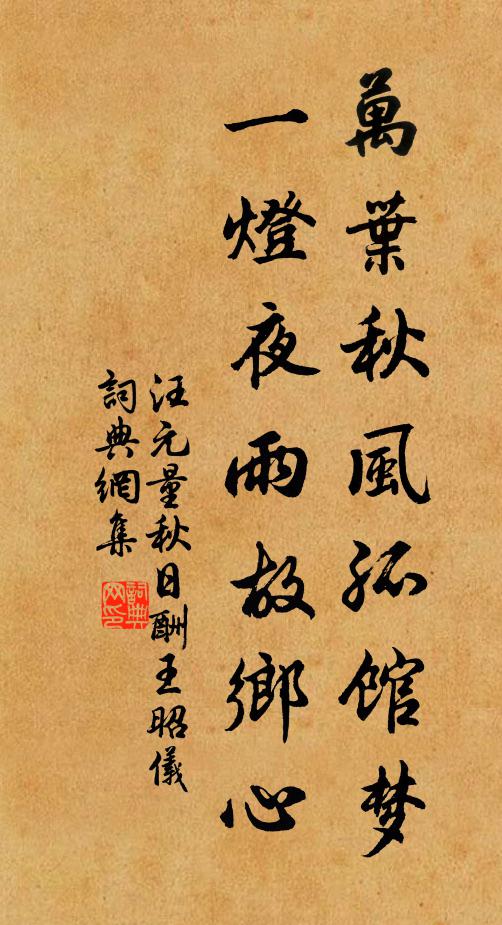 萬葉秋風孤館梦
一燈夜雨故鄉心
汪元量秋日酬王昭儀
詞典網集
詞典网印